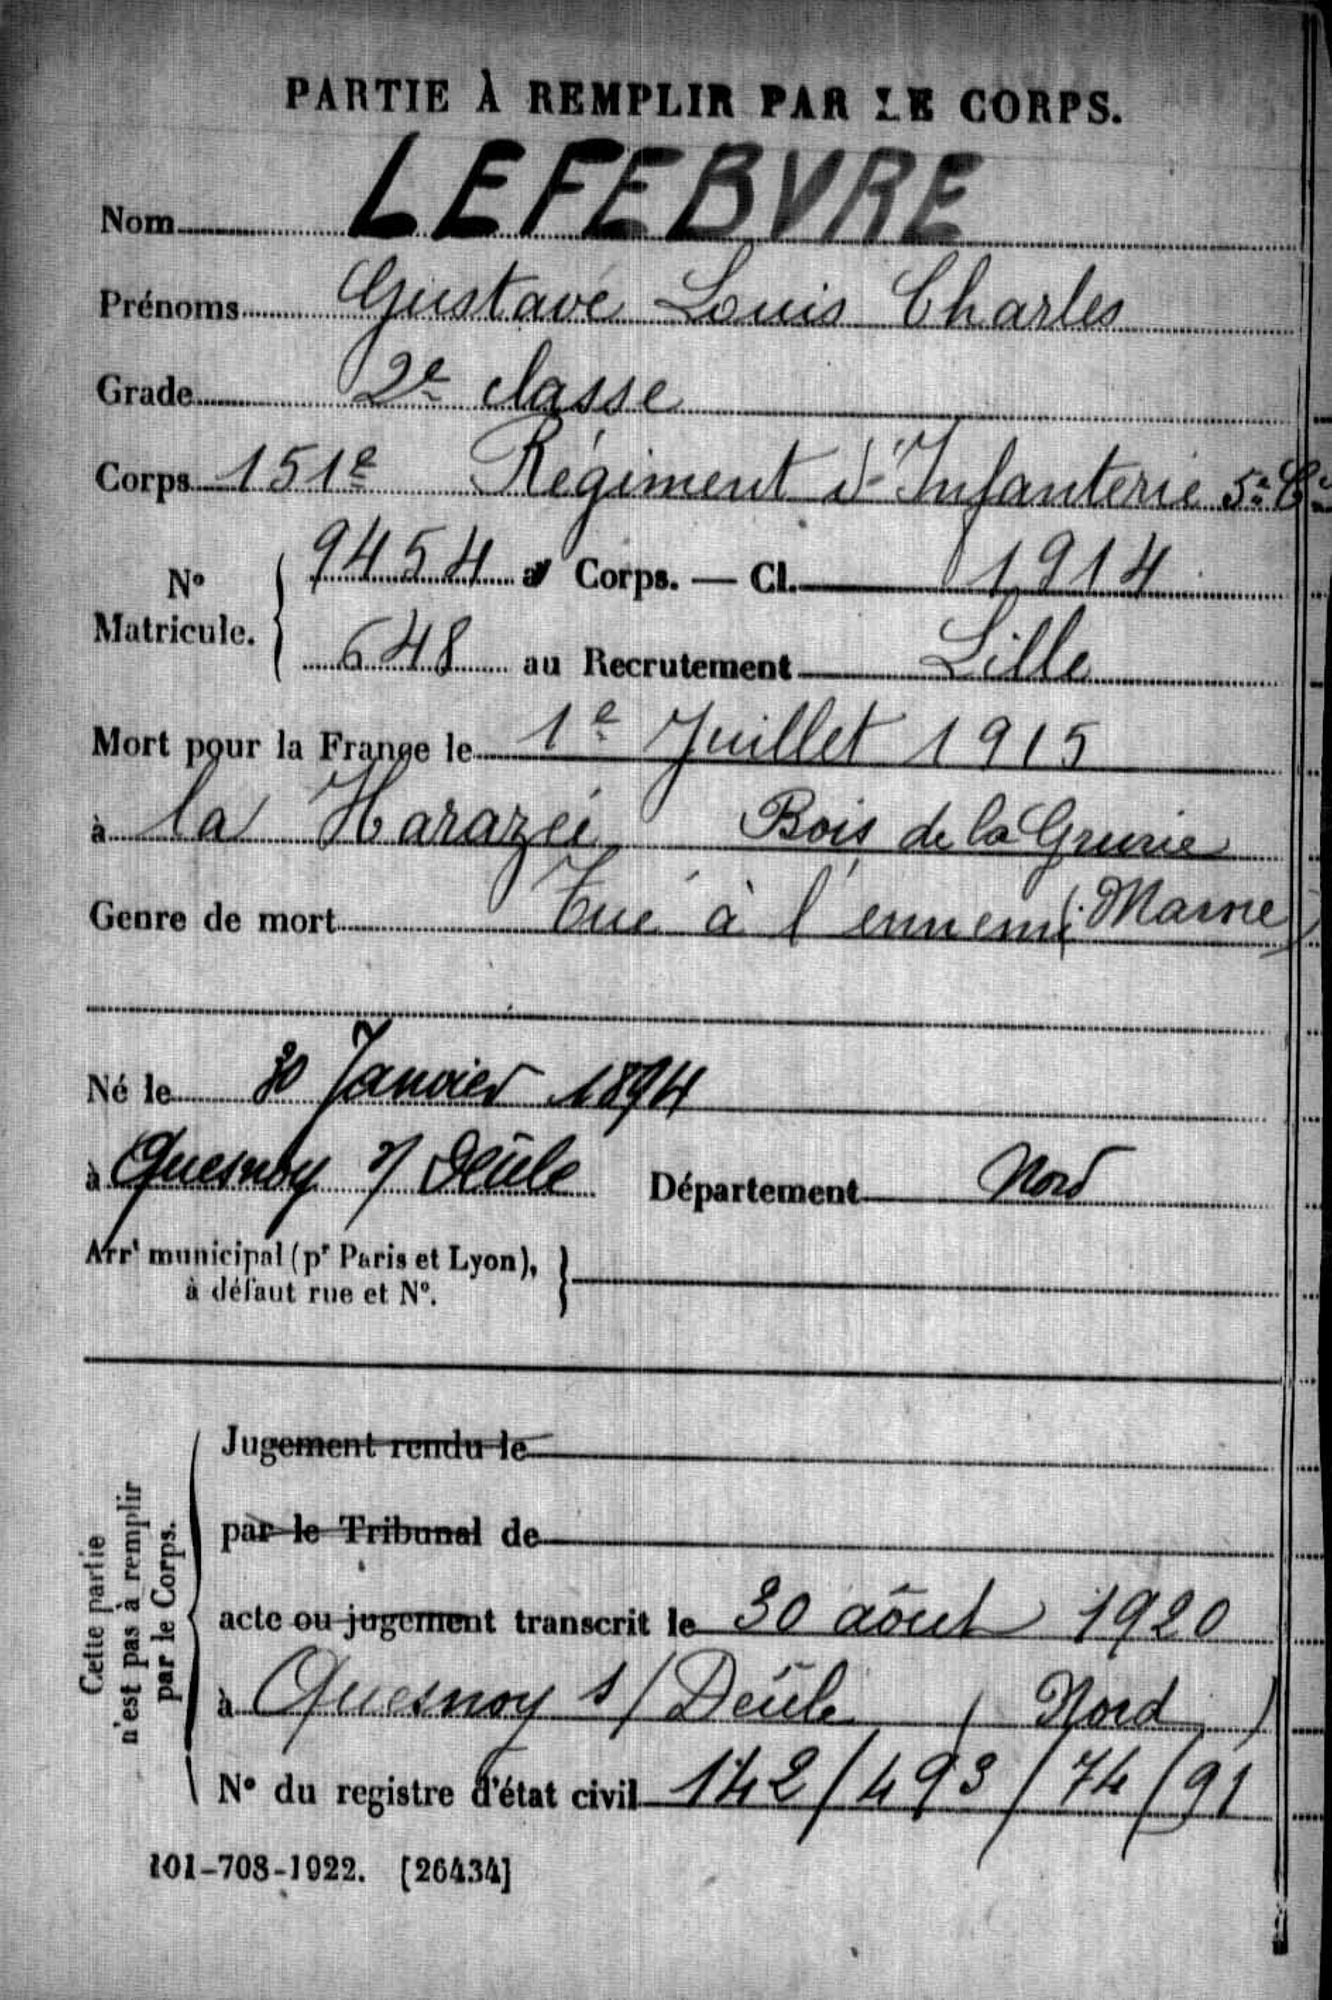 PARTIE À REMPLIR PAR LE CORPS.
Nom LEFEBVRE
Prénoms Gustave Louis Charles
Grade 2e classe
Corps 151e Régiment d'Infanterie 5e Cie
No Matricule. { 9454 au Corps. — Cl. 1914
648 au Recrutement Lille
Mort pour la France le 1e Juillet 1915
à la Harazéi Bois de la Grurie
Genre de mort Tué à l'ennemi (Marne)
Né le 30 Janvier 1894
à Quesnoy s/ Deûle Département Nord
Arrt municipal (pr Paris et Lyon), }
à défaut rue et No.
Cette partie
n'est pas à remplir
par le Corps.
Jugement rendu le
par le Tribunal de
acte ou jugement transcrit le 30 aôut 1920
à Quesnoy s/ Deûle (Nord)
No du registre d'état civil 142/493/74/91
101-708-1922. [26434]